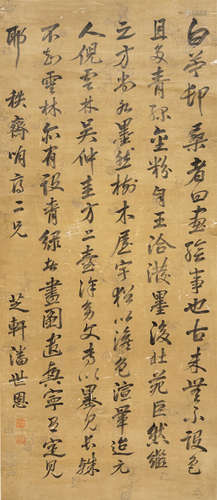 白茅邨桑者曰畫繪事也古來無不設色
且多青綠金粉自王洽潑墨後北苑巨然繼
之方尚水墨然樹木屋宇猶以淡色渲暈迨元
人倪雲林吳仲圭方方壺徐幼文專以墨見長殊
不知雲林亦有設青綠者畫圖遣興寧有定見
耶 秩齋二兄
芝軒潘世恩